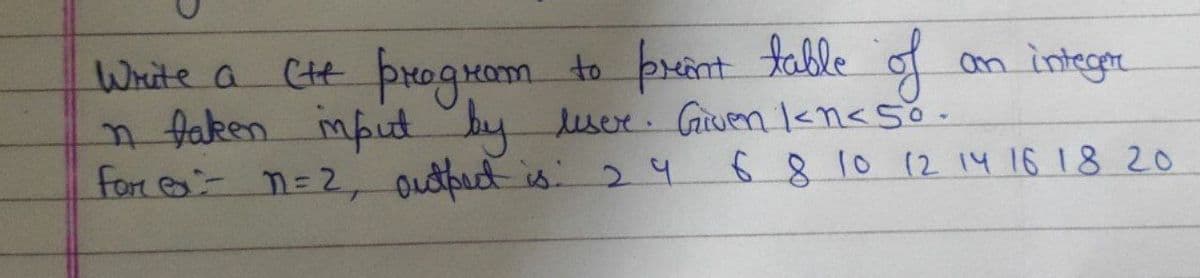 Write a C++ program to print table of an integer
n taken input by user. Given 1<n<50.
for ex:- n=2, output is: 2 4 6 8 10 12 14 16 18 20